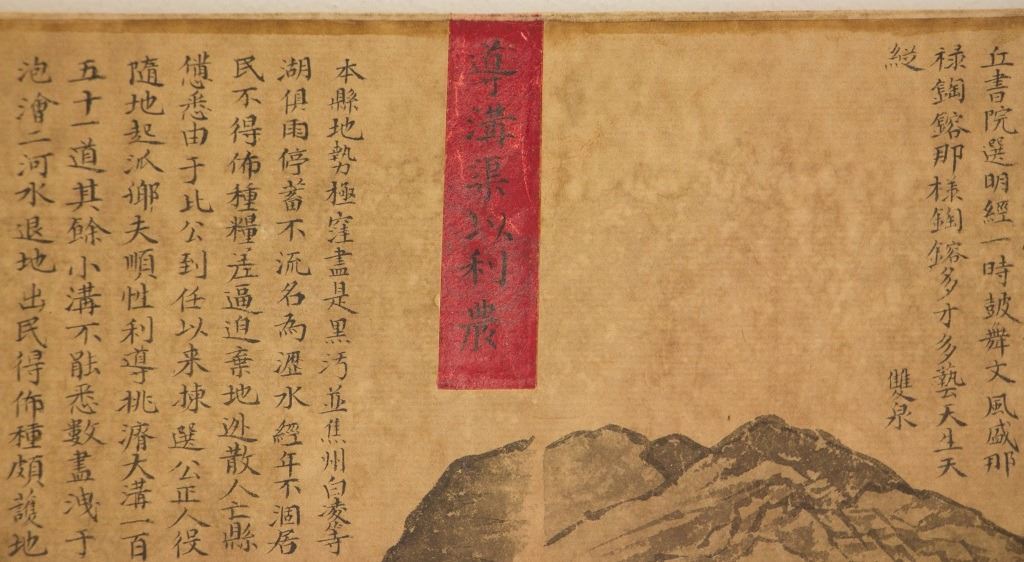 丘書院選明經一時鼓舞文風盛那
様錭鎔那様錭鎔多才多藝天生天
縱
雙泉
導溝渠以利農
本縣地勢極窪盡是黒汚並焦州白凌等
湖俱雨停蓄不流名為瀝水經年不涸居
民不得佈種糧差逼迫棄地迯散人亡縣
憊悉由于此公到任以来揀選公正人役
隨地起派鄉夫順性利導挑濬大溝一百
五十一道其餘小溝不能悉數盡洩于
泡澮二河水退地出民得佈種頗護地